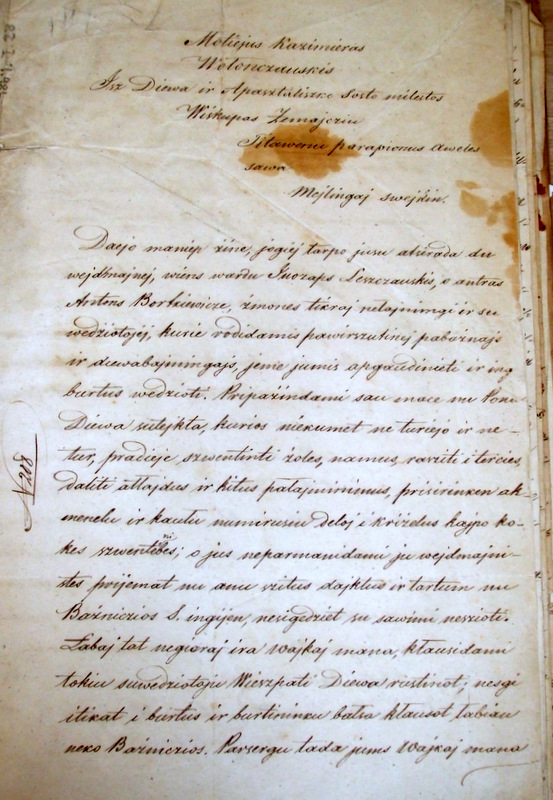 Motiejus Kazimieras
Wolonczauskis
Isz Diewa ir Apasztaliszko Sosto milestos
Wiskupas Zemajcziu
Titawenu parapionus aweles
sawa
Mejlingaj swejkin.
Daejo maniep žine, jogiej tarpo jusu atsirada du
wejdmajnej, wiens wardu Juozaps Leszczauskis, o antras
Antons Borkiewicze, žmones tikraj netajmingi ir su
wedžiotojej, kurie rodidamis pawirszutinej pabožnajs
ir diewabajmingajs, jeme jumis apgaudinieti ir ing
burtus wedžioti. Pripažindami sau mace nu Pona
Diewa sutejkta, kurios niekumet ne turiejo ir ne-
tur, pradieje szwentinti žoles, namus, raviti i tercies,
daliti atlajdus ir kitus palajminimus, prisirinken ak-
menelu ir kaulu numirusiu deloj i križelus kajpo ko-
kes szwentenibes; o jus neparmanidami ju wejdmajni-
stes prijemat nu anu szitus dajktus ir tartum nu
Bažniczios S. ingijen, nesigediet su sawimi nesziot.
Labaj tat negieraj ira Wajkaj mana, kłausidami
tokiu suwedžiotoju Wieszpati Diewa rustinot; nesgi
itikat i burtus ir burtininku balsa kłausot labiau
neko Bažniczios. Parsergu tada jums Wajkaj mana
N 218